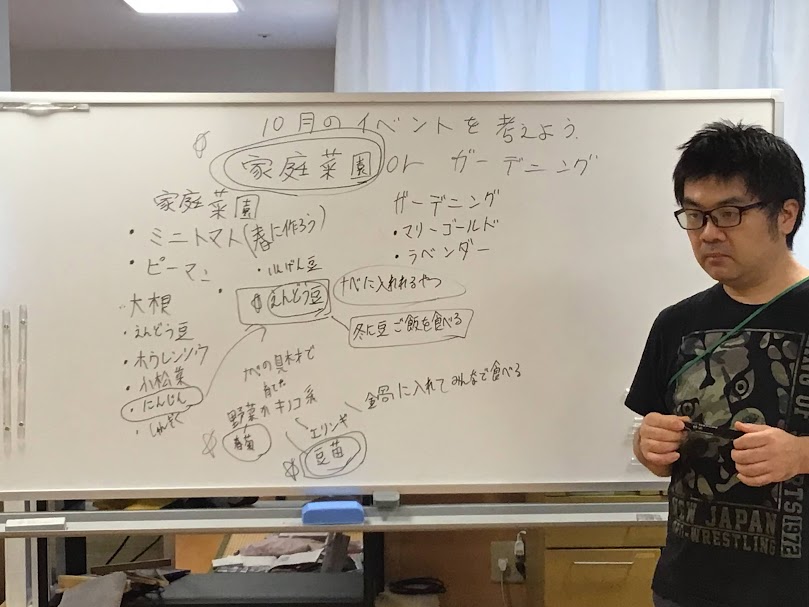 10月のイベントを考えよう.
家庭菜園 or ガーデニング
家庭菜園
・ミニトマト(春に作ろう)
・ピーマン
大根
・えんどう豆
・ホウレンソウ
・小松菜
・にんじん
・いんげん豆
えんどう豆
ナベに入れれるやつ
冬に豆ご飯を食べる
ナベの具材で
野菜か キノコ系
春菊
エリンギ
豆苗
鍋に入れてみんなで食べる
ガーデニング
・マリーゴールド
・ラベンダー
NEW JAPAN
PRO-WRESTLING